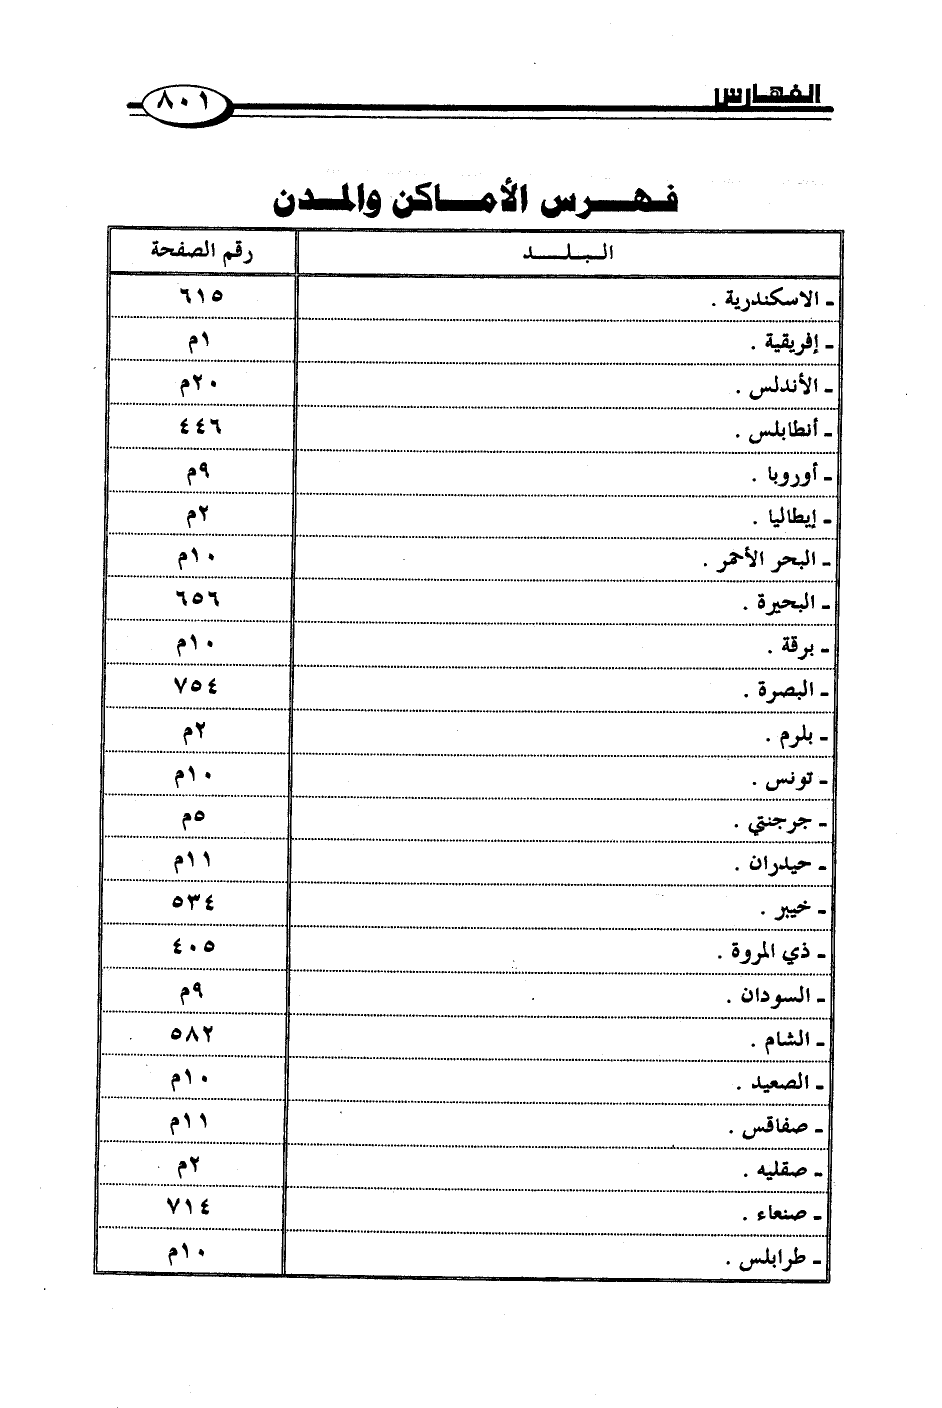 الفهارس ٨٠١
فهرس الأماكن والمدن
البلد رقم الصفحة
ـ الاسكندرية . ٦١٥
ـ إفريقية . ١م
ـ الأندلس . ٢٠م
ـ أنطابلس . ٤٤٦
ـ أوروبا . ٩م
ـ إيطاليا . ٢م
ـ البحر الأحمر . ١٠م
ـ البحيرة . ٦٥٦
ـ برقة . ١٠م
ـ البصرة . ٧٥٤
ـ بلرم . ٢م
ـ تونس . ١٠م
ـ جرجنتي . ٥م
ـ حيدران . ١١م
ـ خيبر . ٥٣٤
ـ ذي المروة . ٤٠٥
ـ السودان . ٩م
ـ الشام . ٥٨٢
ـ الصعيد . ١٠م
ـ صفاقس . ١١م
ـ صقليه . ٢م
ـ صنعاء . ٧١٤
ـ طرابلس . ١٠م